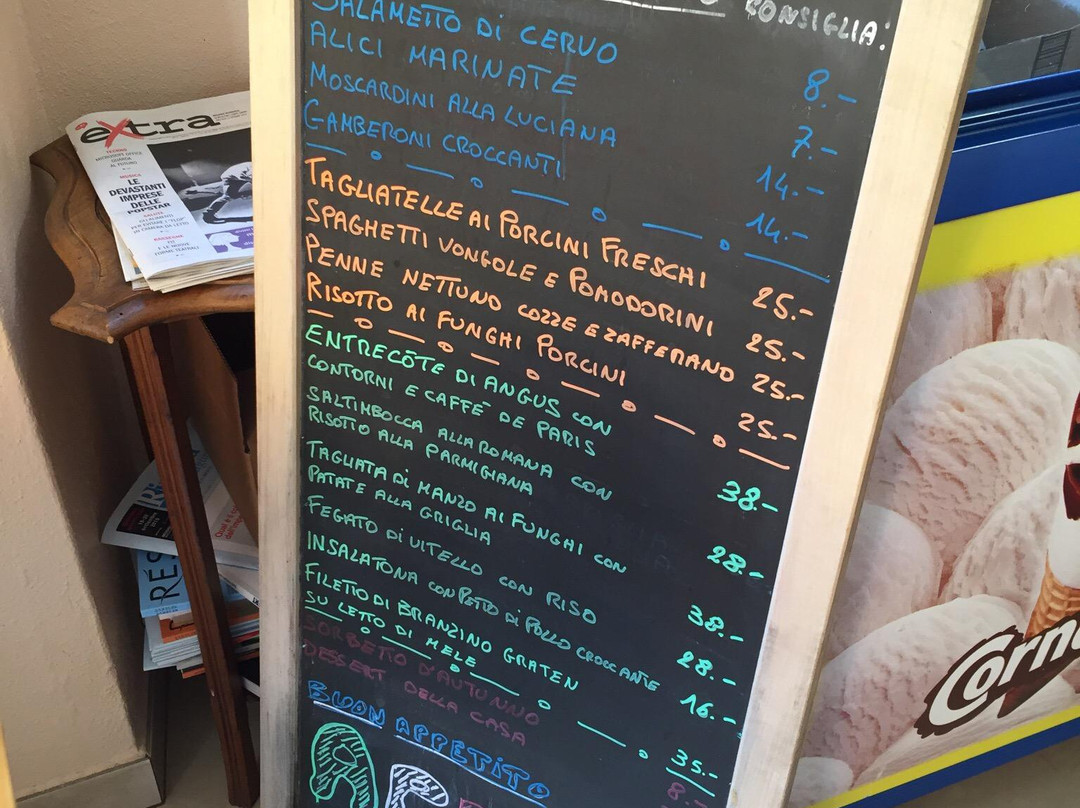 CONSIGLIA:
SALAMETTO DI CERVO 8.-
ALICI MARINATE 7.-
MOSCARDINI ALLA LUCIANA 14.-
GAMBERONI CROCCANTI 14.-
TAGLIATELLE AI PORCINI FRESCHI 25.-
SPAGHETTI VONGOLE E POMODORINI 25.-
PENNE NETTUNO COZZE E ZAFFERANO 25.-
RISOTTO AI FUNGHI PORCINI 25.-
ENTRECÔTE DI ANGUS CON
CONTORNI E CAFFÈ DE PARIS 38.-
SALTIMBOCCA ALLA ROMANA CON
RISOTTO ALLA PARMIGIANA 28.-
TAGLIATA DI MANZO AI FUNGHI CON
PATATE ALLA GRIGLIA 38.-
FEGATO DI VITELLO CON RISO 28.-
INSALATONA CON PETTO DI POLLO CROCCANTE 16.-
FILETTO DI BRANZINO GRATEN
SU LETTO DI MELE 35.-
SORBETTO D'AUTUNNO 8.-
DESSERT DELLA CASA
BUON APPETITO
extra
LE
DEVASTANTI
IMPRESE
DELLE
POPSTAR
RÉS
Corn